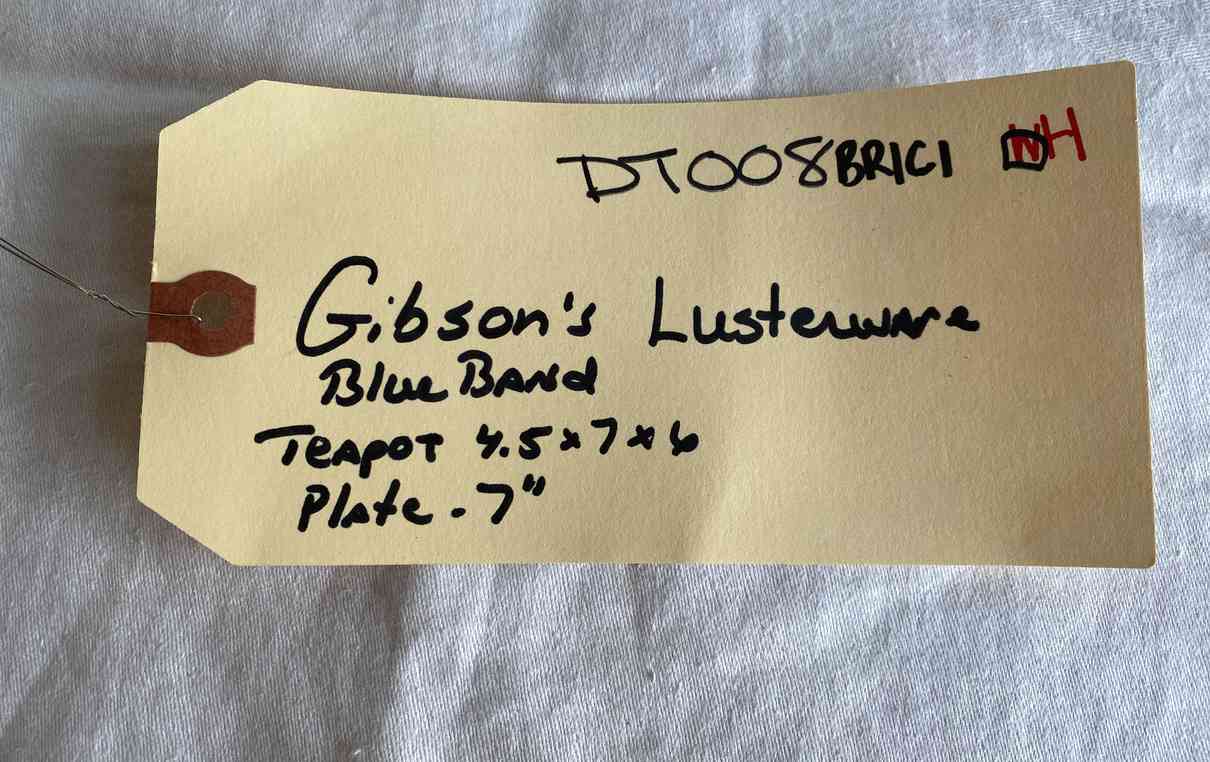 DT008BRIC1 NH
Gibson's Lusterware
Blue Band
Teapot 4.5 x 7 x 6
Plate - 7"